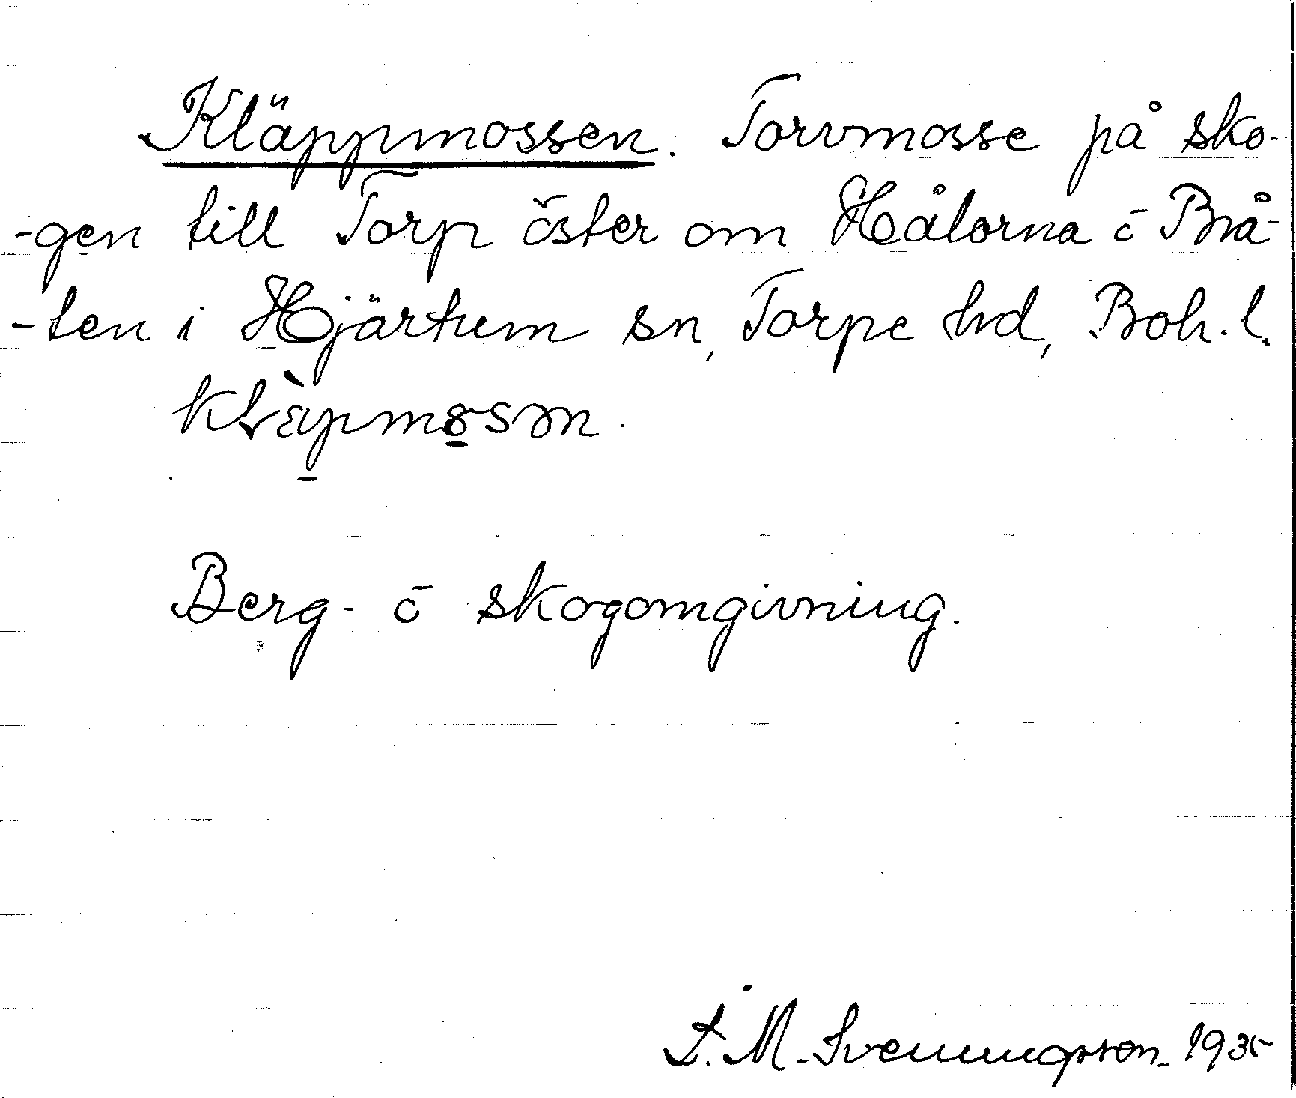 Kläppmossen. Torvmosse på sko-
-gen till Torp öster om Hålorna ō Brå-
-ten i Hjärtum sn, Torpe hd, Boh. l.
Berg- ō skogomgivning.
M. Svenungsson 1935